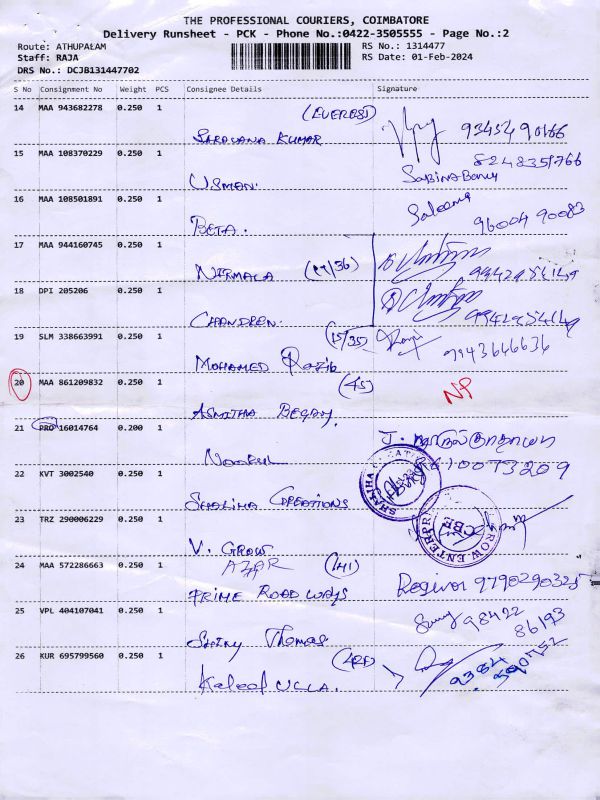 THE PROFESSIONAL COURIERS, COIMBATORE
Delivery Runsheet - PCK - Phone No.:0422-3505555 - Page No.:2
Route: ATHUPALAM
RS No.: 1314477
Staff: RAJA
RS Date: 01-Feb-2024
DRS No.: DCJB131447702
S No Consignment No Weight PCS Consignee Details Signature
14 MAA 943682278 0.250 1 (EVEREST)
SARAVANA KUMAR
15 MAA 108370229 0.250 1 8248351766
USMAN. SABINA Banu
16 MAA 108501891 0.250 1 Saleema
BETA. 96004 90083
17 MAA 944160745 0.250 1
NIRMALA (17/36)
18 DPI 205206 0.250 1
CHANDREN.
19 SLM 338663991 0.250 1 (15/35)
MOHAMED 9943646636
20 MAA 861209832 0.250 1 (45) NP
ASMITHA BEGAM.
21 PRO 16014764 0.200 1
22 KVT 3002540 0.250 1
SHALIHA CREATIONS
23 TRZ 290006229 0.250 1
V. GROW
AZAR
24 MAA 572286663 0.250 1 (141)
PRIME ROAD WAYS 9790290325
25 VPL 404107041 0.250 1 98422
86193
SHINY Thomas
26 KUR 695799560 0.250 1
Kaleef ULLA.